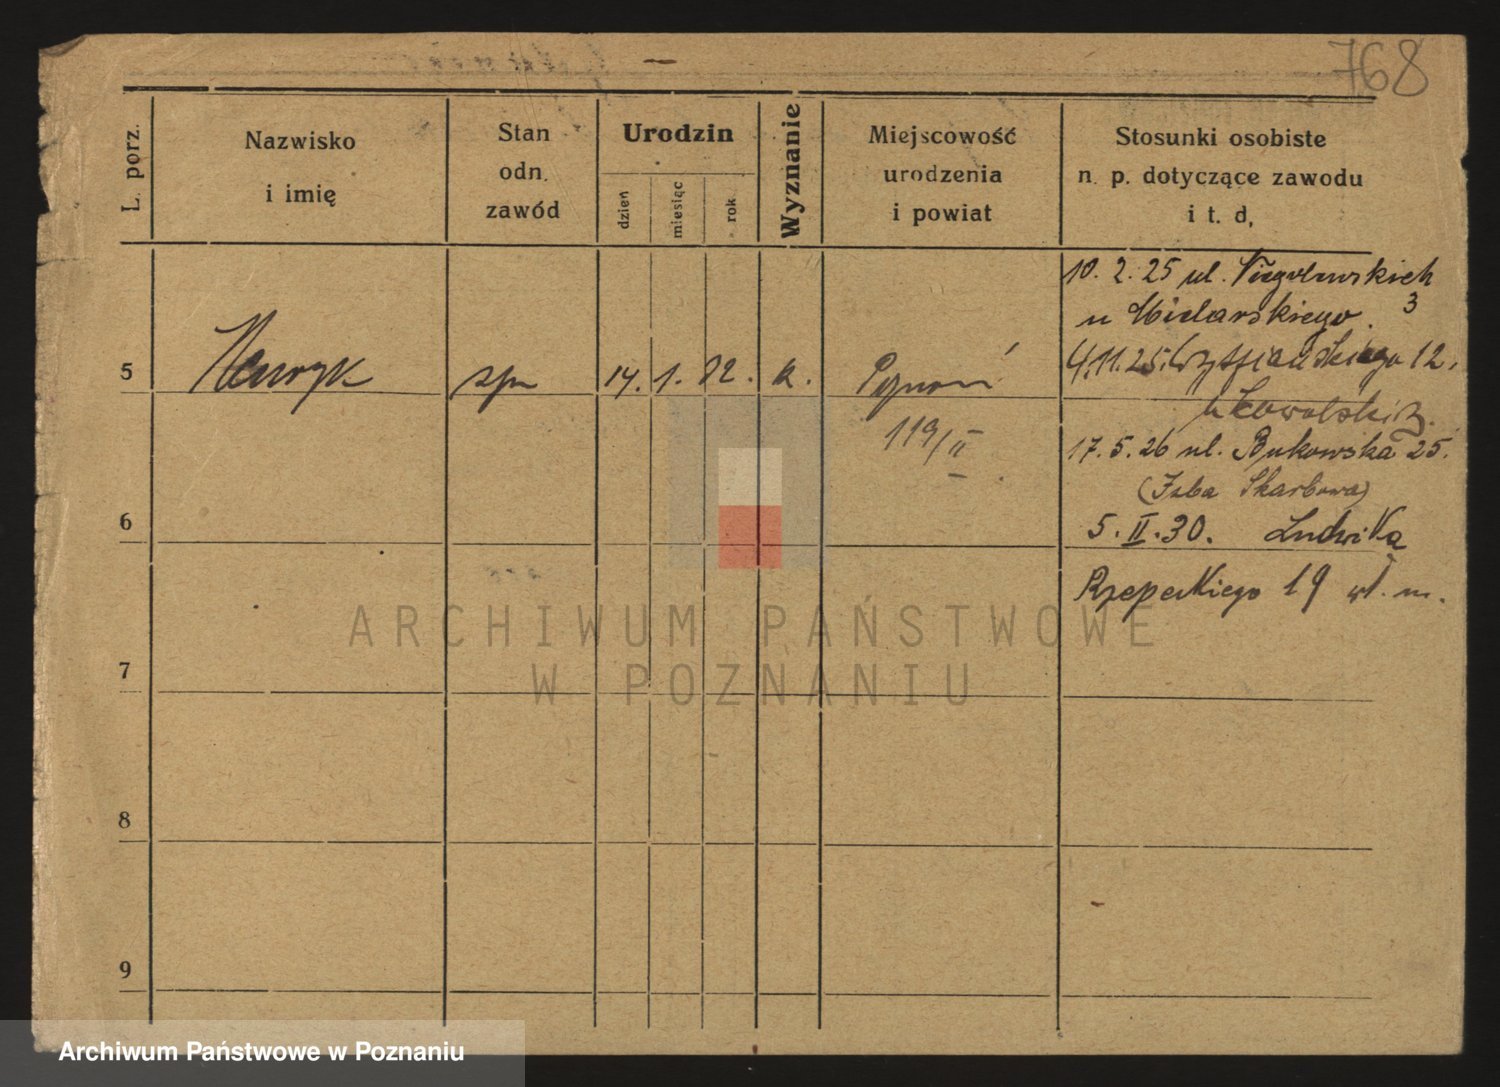 768
L. porz.
Nazwisko
i imię
Stan
odn.
zawód
Urodzin
dzień
miesiąc
rok
Wyznanie
Miejscowość
urodzenia
i powiat
Stosunki osobiste
n. p. dotyczące zawodu
i t. d,
10. 2. 25 ul.
u 3
5 Henryk syn 14. 1. k. Poznań
4.11.25. 12.
u
119/II
17. 5. 26 ul. Bukowska 25.
(Izba Skarbowa)
6
5. II. 30. Ludwika
Rzepeckiego 19 wł. m.
ARCHIWUM PAŃSTWOWE
W POZNANIU
7
8
9
Archiwum Państwowe w Poznaniu